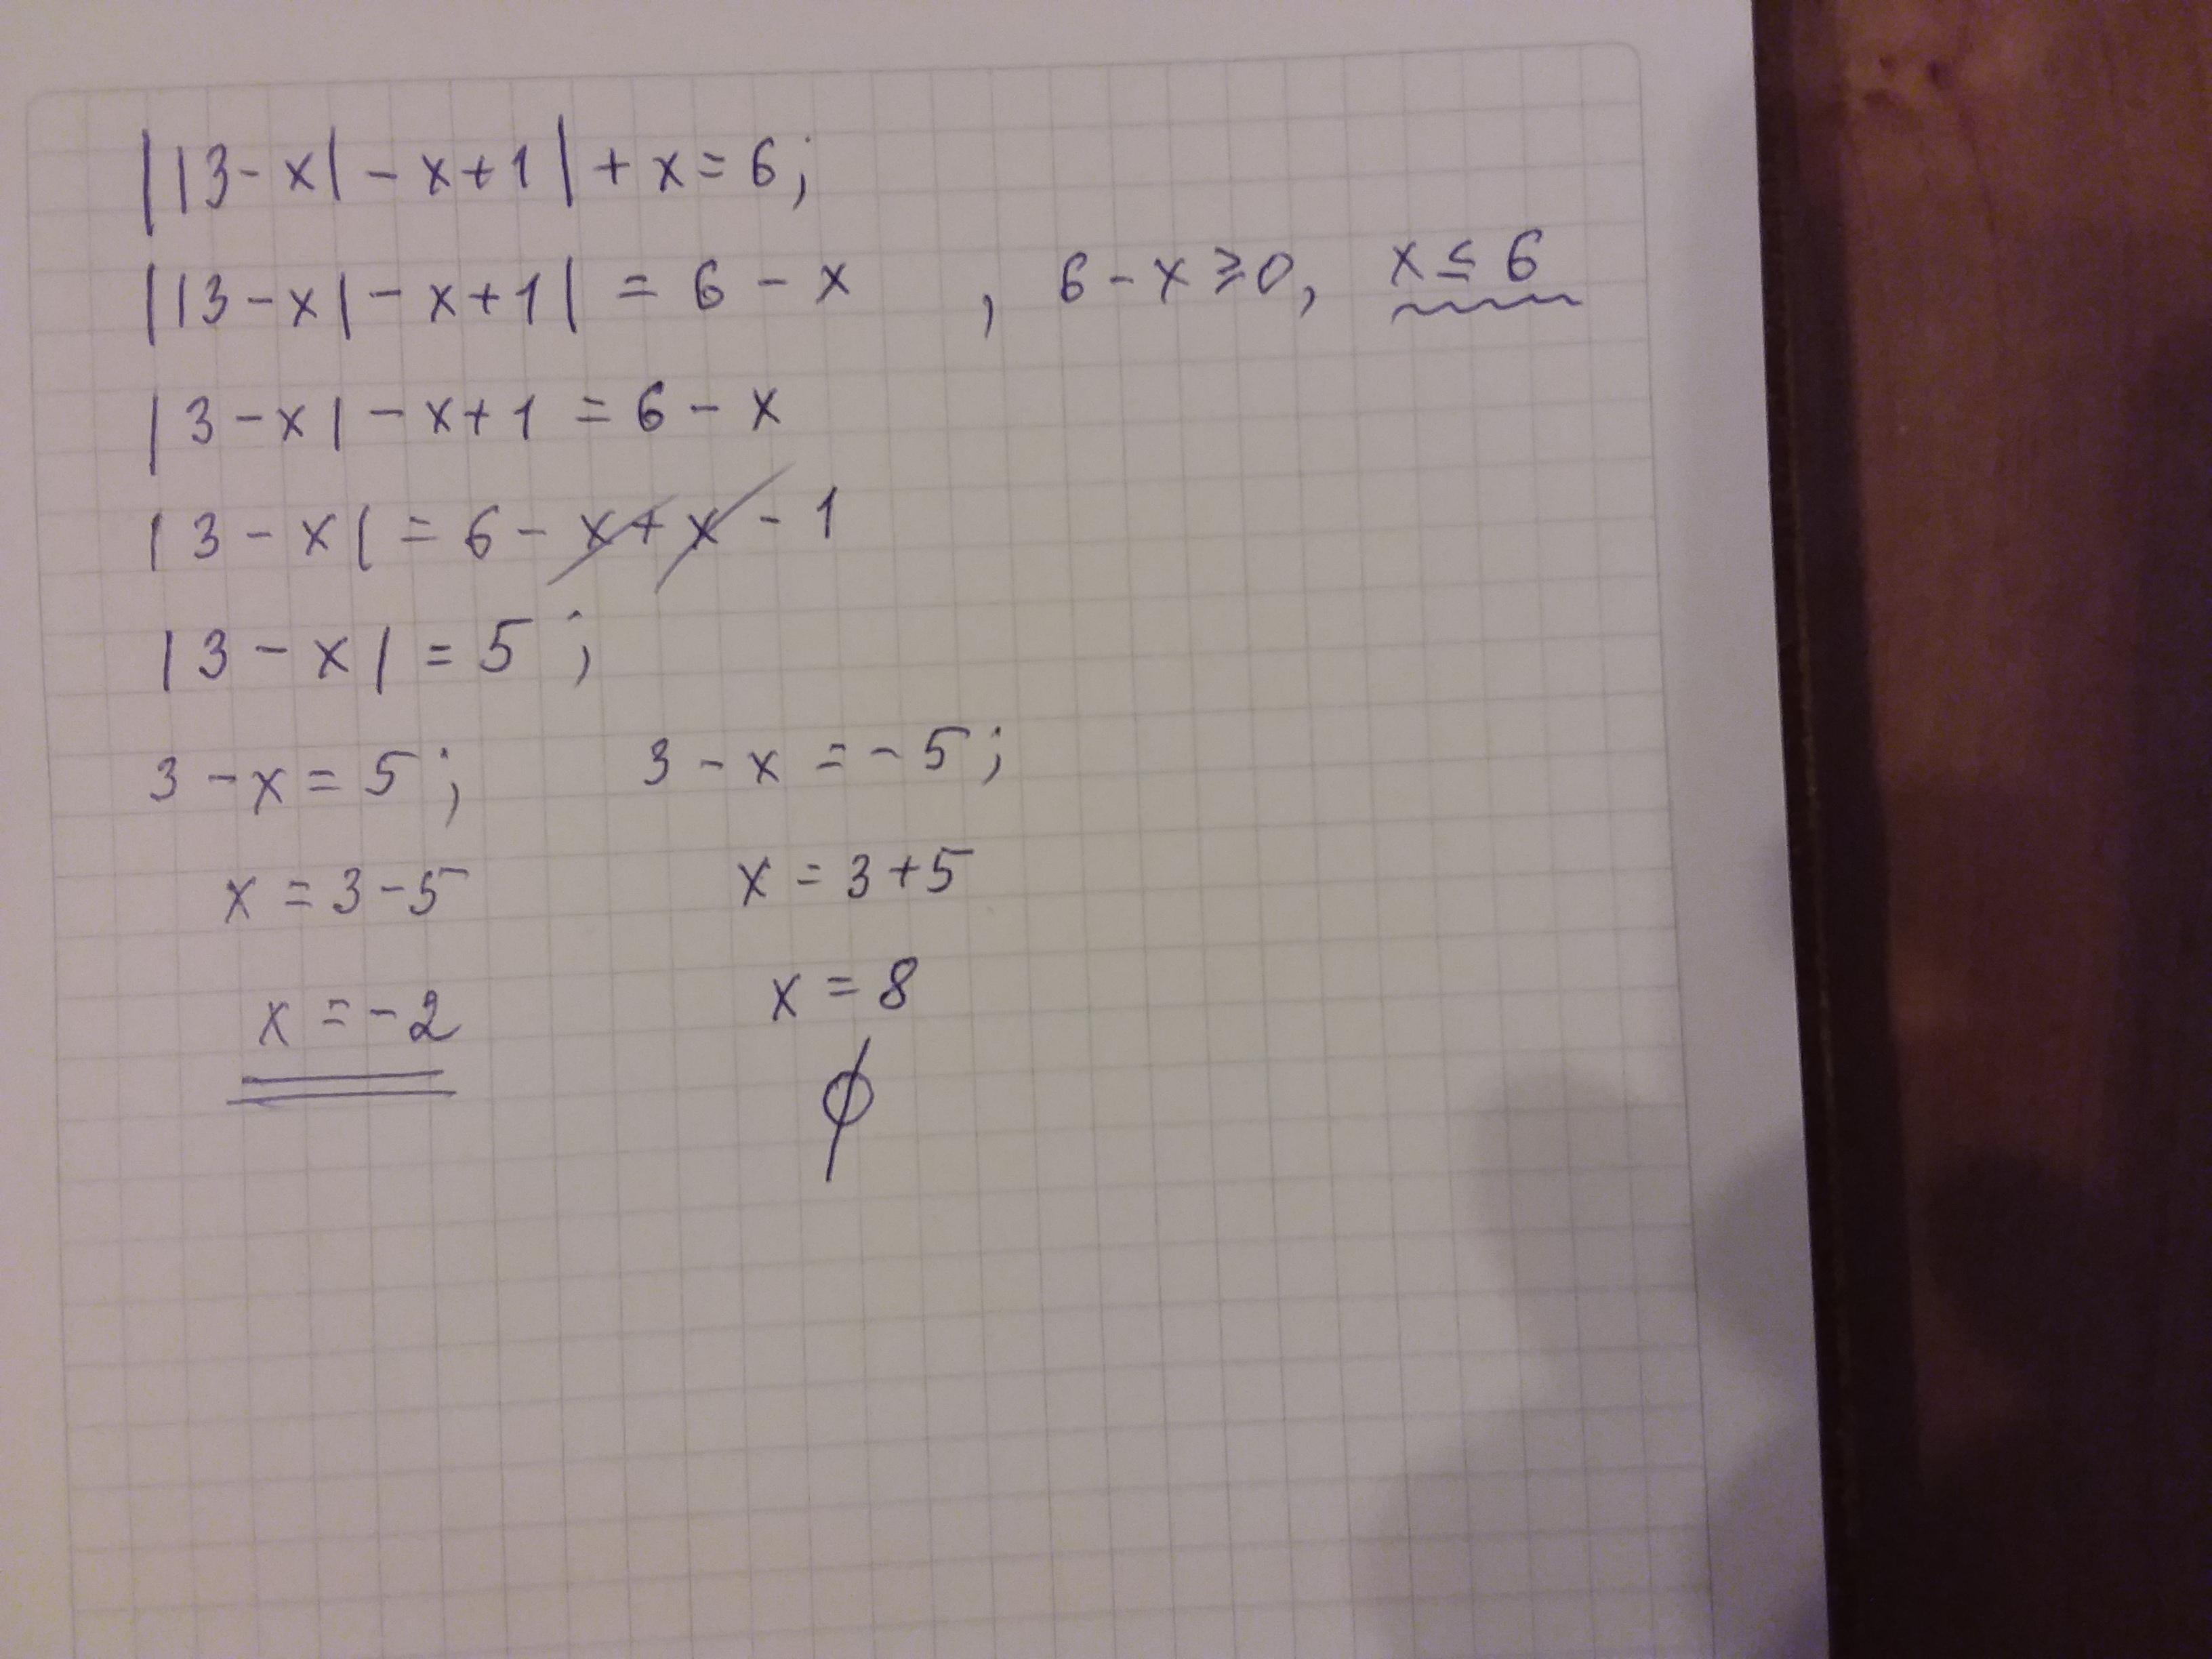 ||3-x|-x+1|+x=6;
||3-x|-x+1| = 6-x , 6-x⩾0, x≤6
|3-x|-x+1 = 6-x
|3-x| = 6-x+x-1
|3-x| = 5;
3-x=5; 3-x=-5;
x=3-5 x=3+5
x=-2 x=8
∅